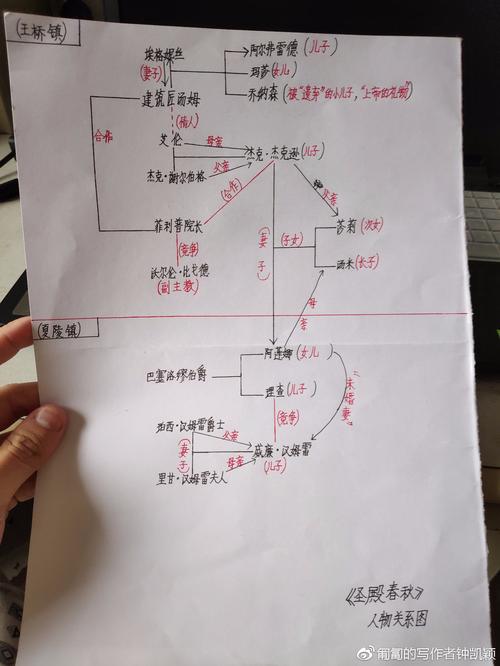 (王桥镇)
埃格妮丝
(妻子)
阿尔弗雷德(儿子)
玛莎(女儿)
乔纳森(被“遗弃”的小儿子,“上帝的礼物”)
建筑匠汤姆
(情人)
合作
艾伦
母亲
杰克·杰克逊(儿子)
杰克·谢尔伯格
父亲
(合作)
父亲
菲利普院长
(竞争)
沃尔伦·比戈德
(副主教)
(妻子)
(子女)
莎莉(次女)
汤米(长子)
母亲
(夏陵镇)
阿莲娜(女儿)
巴塞洛缪伯爵
理查(儿子)
(竞争)
“未婚妻”
珀西·汉姆雷爵士
父亲
(妻子)
威廉·汉姆雷
(儿子)
母亲
里甘·汉姆雷夫人
《圣殿春秋》
人物关系图
@匍匐的写作者钟凯颖